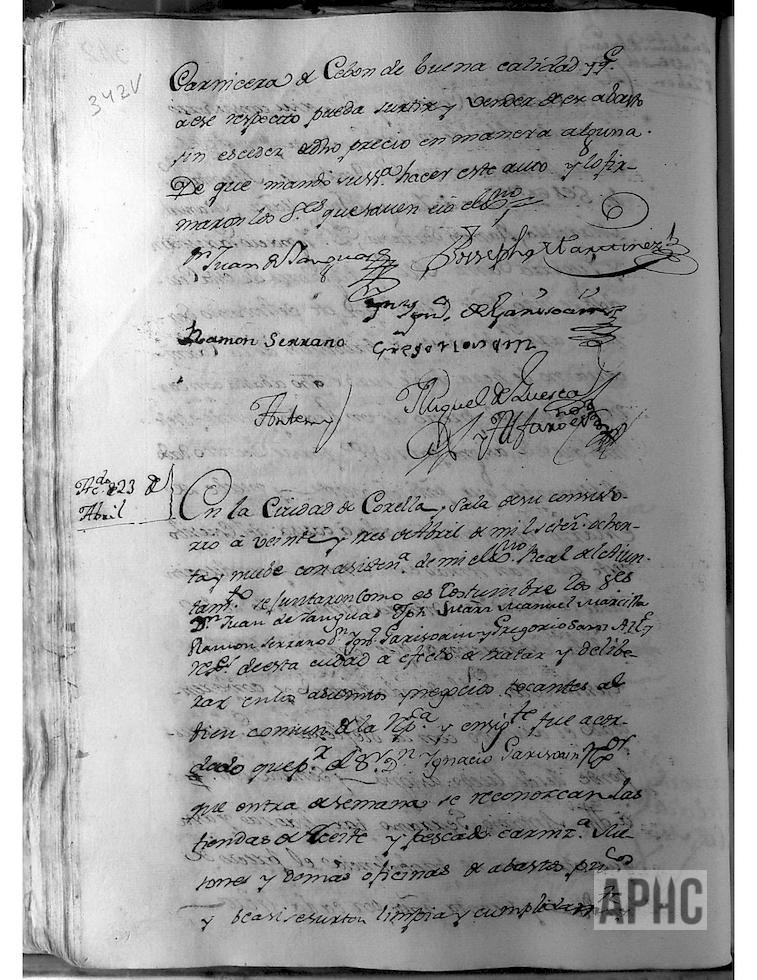 342V
Carnicera de Cebon de buena calidad y q.e
à ese respecto pueda surtir y vender ese abasto
sin esceder dho precio en manera alguna.
De que mandó su ss.a hacer este auto y lo fir-
maron los S.res que saven è yo el ss.no
D.n Juan de Sanguas
Joseph Martinez
Ygn.o de Garisoain
Ramon Serrano
Gregorio Sanz
Antemy
Miguel de Luesca
y Alfaro es.no
Ac.do de 23 de
Abril
En la Ciudad de Corella, Sala de su consisto-
rio à veinte y tres de Abril de mil setez.s ochen-
ta y nuebe con asisten.a de mi el ss.no Real del Aiun-
tam.to se juntaron como es Costumbre los S.res
D.n Juan de Sanguas Jph. Juan Manuel Marcilla
Ramon Serrano D.n Ign.o Garisoain y Gregorio Sanz Al.e y
Re.s de esta ciudad à efecto de tratar y delibe-
rar en los asuntos y negocios tocantes al
bien comun de la Rp.ca y ensig.te fue acor-
dado que p.r el S.r D.n Ygnacio Garisoain Re.or
que entra de semana se reconozcan las
tiendas de Aceite y pescado, carniz.a
tones y demas oficinas de abastos pu.cos
y de casi se surtan limpia y cumplidam.te
APHC